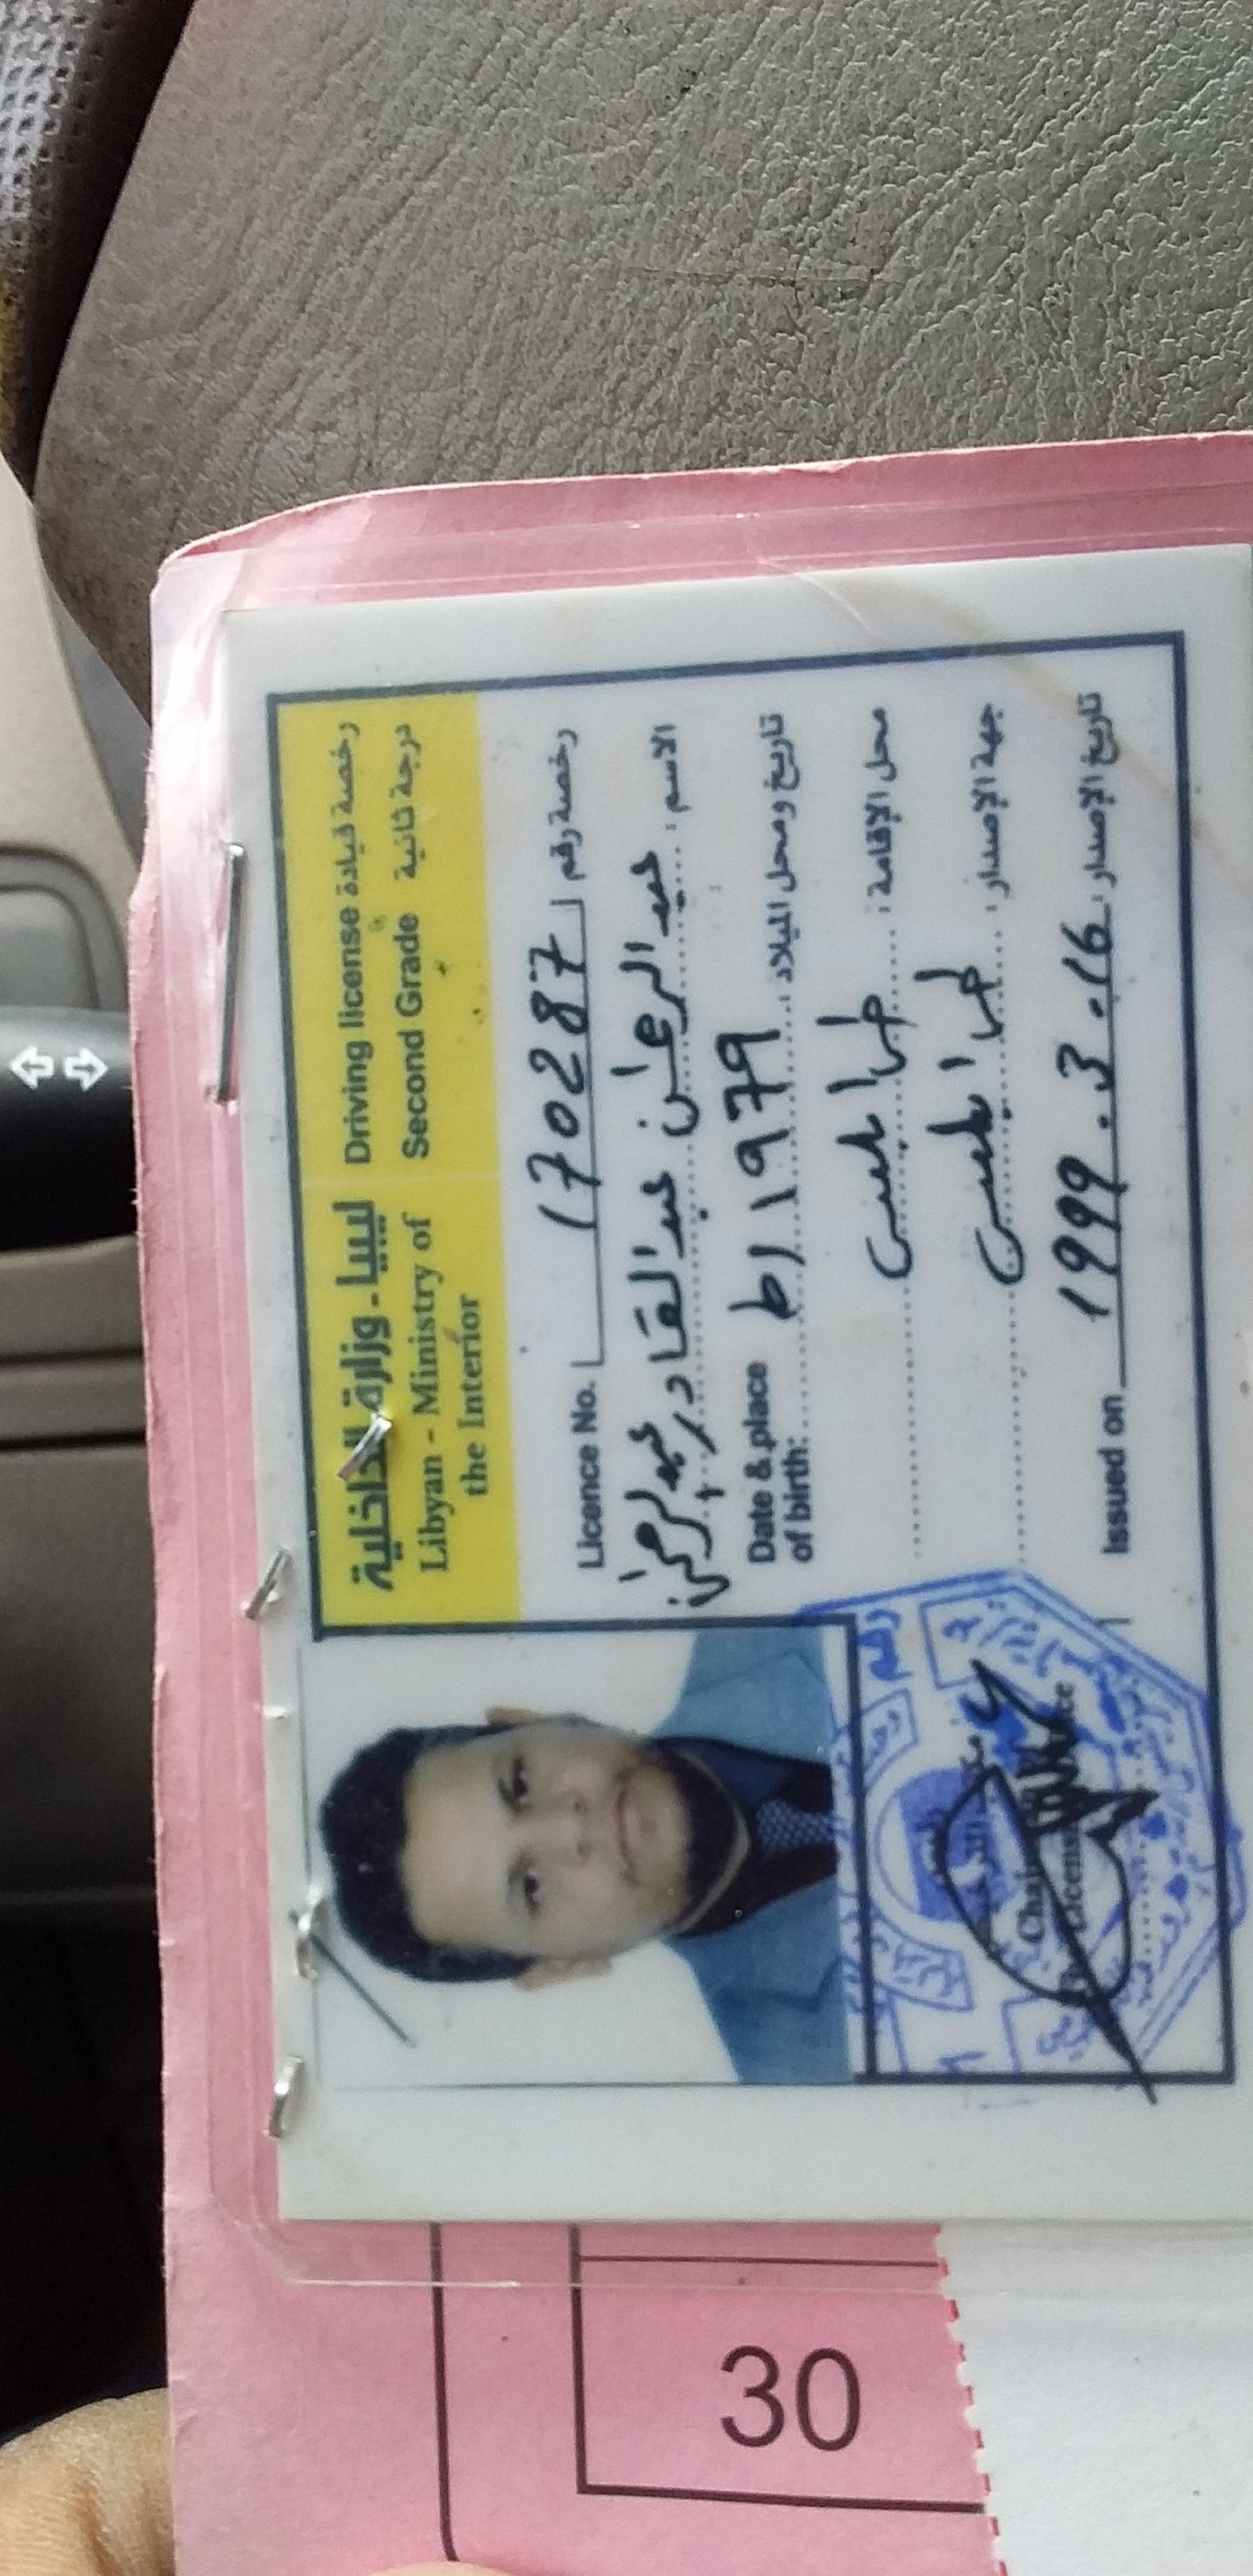 ليبيا - وزارة الداخلية
Libyan - Ministry of
the Interior
Driving license رخصة قيادة
Second Grade درجة ثانية
Licence No. 170287 رخصة رقم
الاسم: عبد الرحمن عبد القادر عبد الرحمن
Date & place
of birth: 1979 / ط تاريخ ومحل الميلاد:
محل الإقامة: طرابلس
جهة الإصدار: طرابلس
Issued on 1999.3.16 تاريخ الإصدار:
30